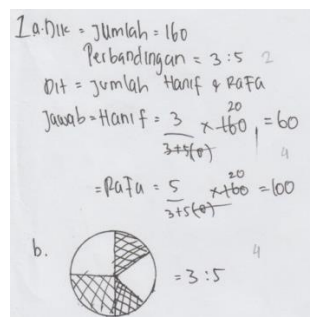 1 a. Dik = Jumlah = 160
Perbandingan = 3 : 5 2
Dit = Jumlah Hanif & Rafa
Jawab = Hanif = 3 / 3+5(8) x 160 20 = 60
4
= Rafa = 5 / 3+5(8) x 160 20 = 100
b. = 3 : 5 4